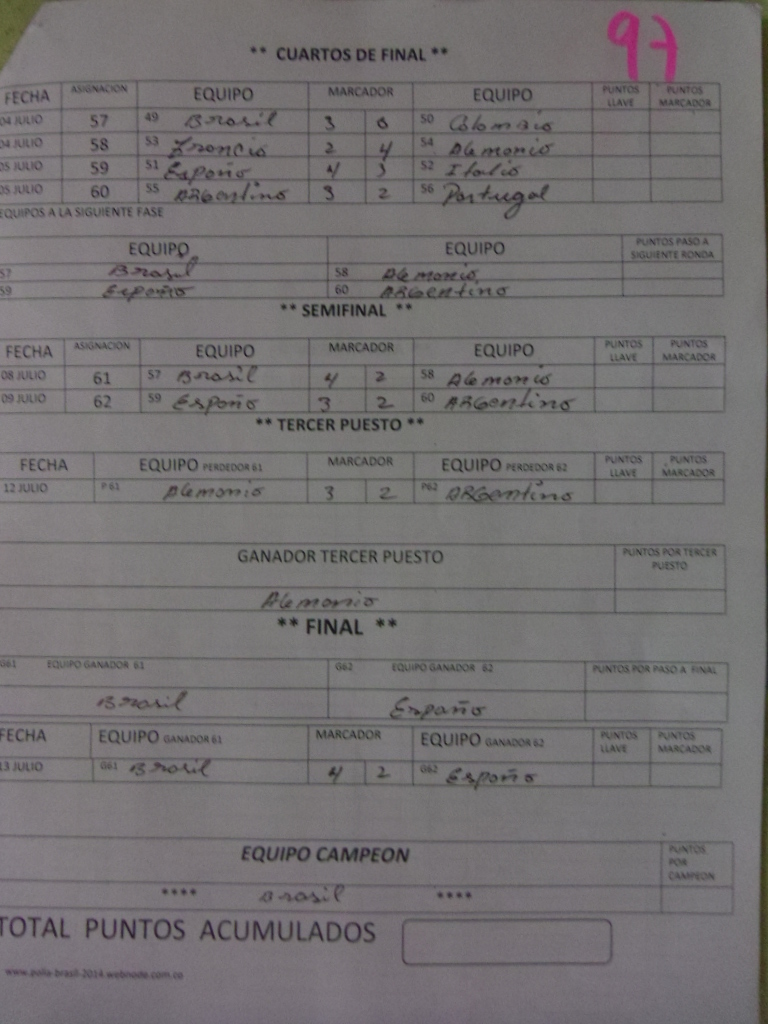 97
** CUARTOS DE FINAL **
FECHA ASIGNACION EQUIPO MARCADOR EQUIPO PUNTOS LLAVE PUNTOS MARCADOR
04 JULIO 57 49 Brasil 3 0 50 Colombia
04 JULIO 58 53 Francia 2 4 54 Alemania
05 JULIO 59 51 España 4 3 52 Italia
05 JULIO 60 55 ARGentina 3 2 56 Portugal
EQUIPOS A LA SIGUIENTE FASE
EQUIPO EQUIPO PUNTOS PASO A SIGUIENTE RONDA
57 Brasil 58 Alemania
59 España 60 ARGentina
** SEMIFINAL **
FECHA ASIGNACION EQUIPO MARCADOR EQUIPO PUNTOS LLAVE PUNTOS MARCADOR
08 JULIO 61 57 Brasil 4 2 58 Alemania
09 JULIO 62 59 España 3 2 60 ARGentina
** TERCER PUESTO **
FECHA EQUIPO PERDEDOR 61 MARCADOR EQUIPO PERDEDOR 62 PUNTOS LLAVE PUNTOS MARCADOR
12 JULIO P 61 Alemania 3 2 P62 ARGentina
GANADOR TERCER PUESTO PUNTOS POR TERCER PUESTO
Alemania
** FINAL **
G61 EQUIPO GANADOR 61 G62 EQUIPO GANADOR 62 PUNTOS POR PASO A FINAL
Brasil España
FECHA EQUIPO GANADOR 61 MARCADOR EQUIPO GANADOR 62 PUNTOS LLAVE PUNTOS MARCADOR
13 JULIO G61 Brasil 4 2 G62 España
EQUIPO CAMPEON PUNTOS POR CAMPEON
**** Brasil ****
TOTAL PUNTOS ACUMULADOS
www.polla-brasil-2014.webnode.com.co